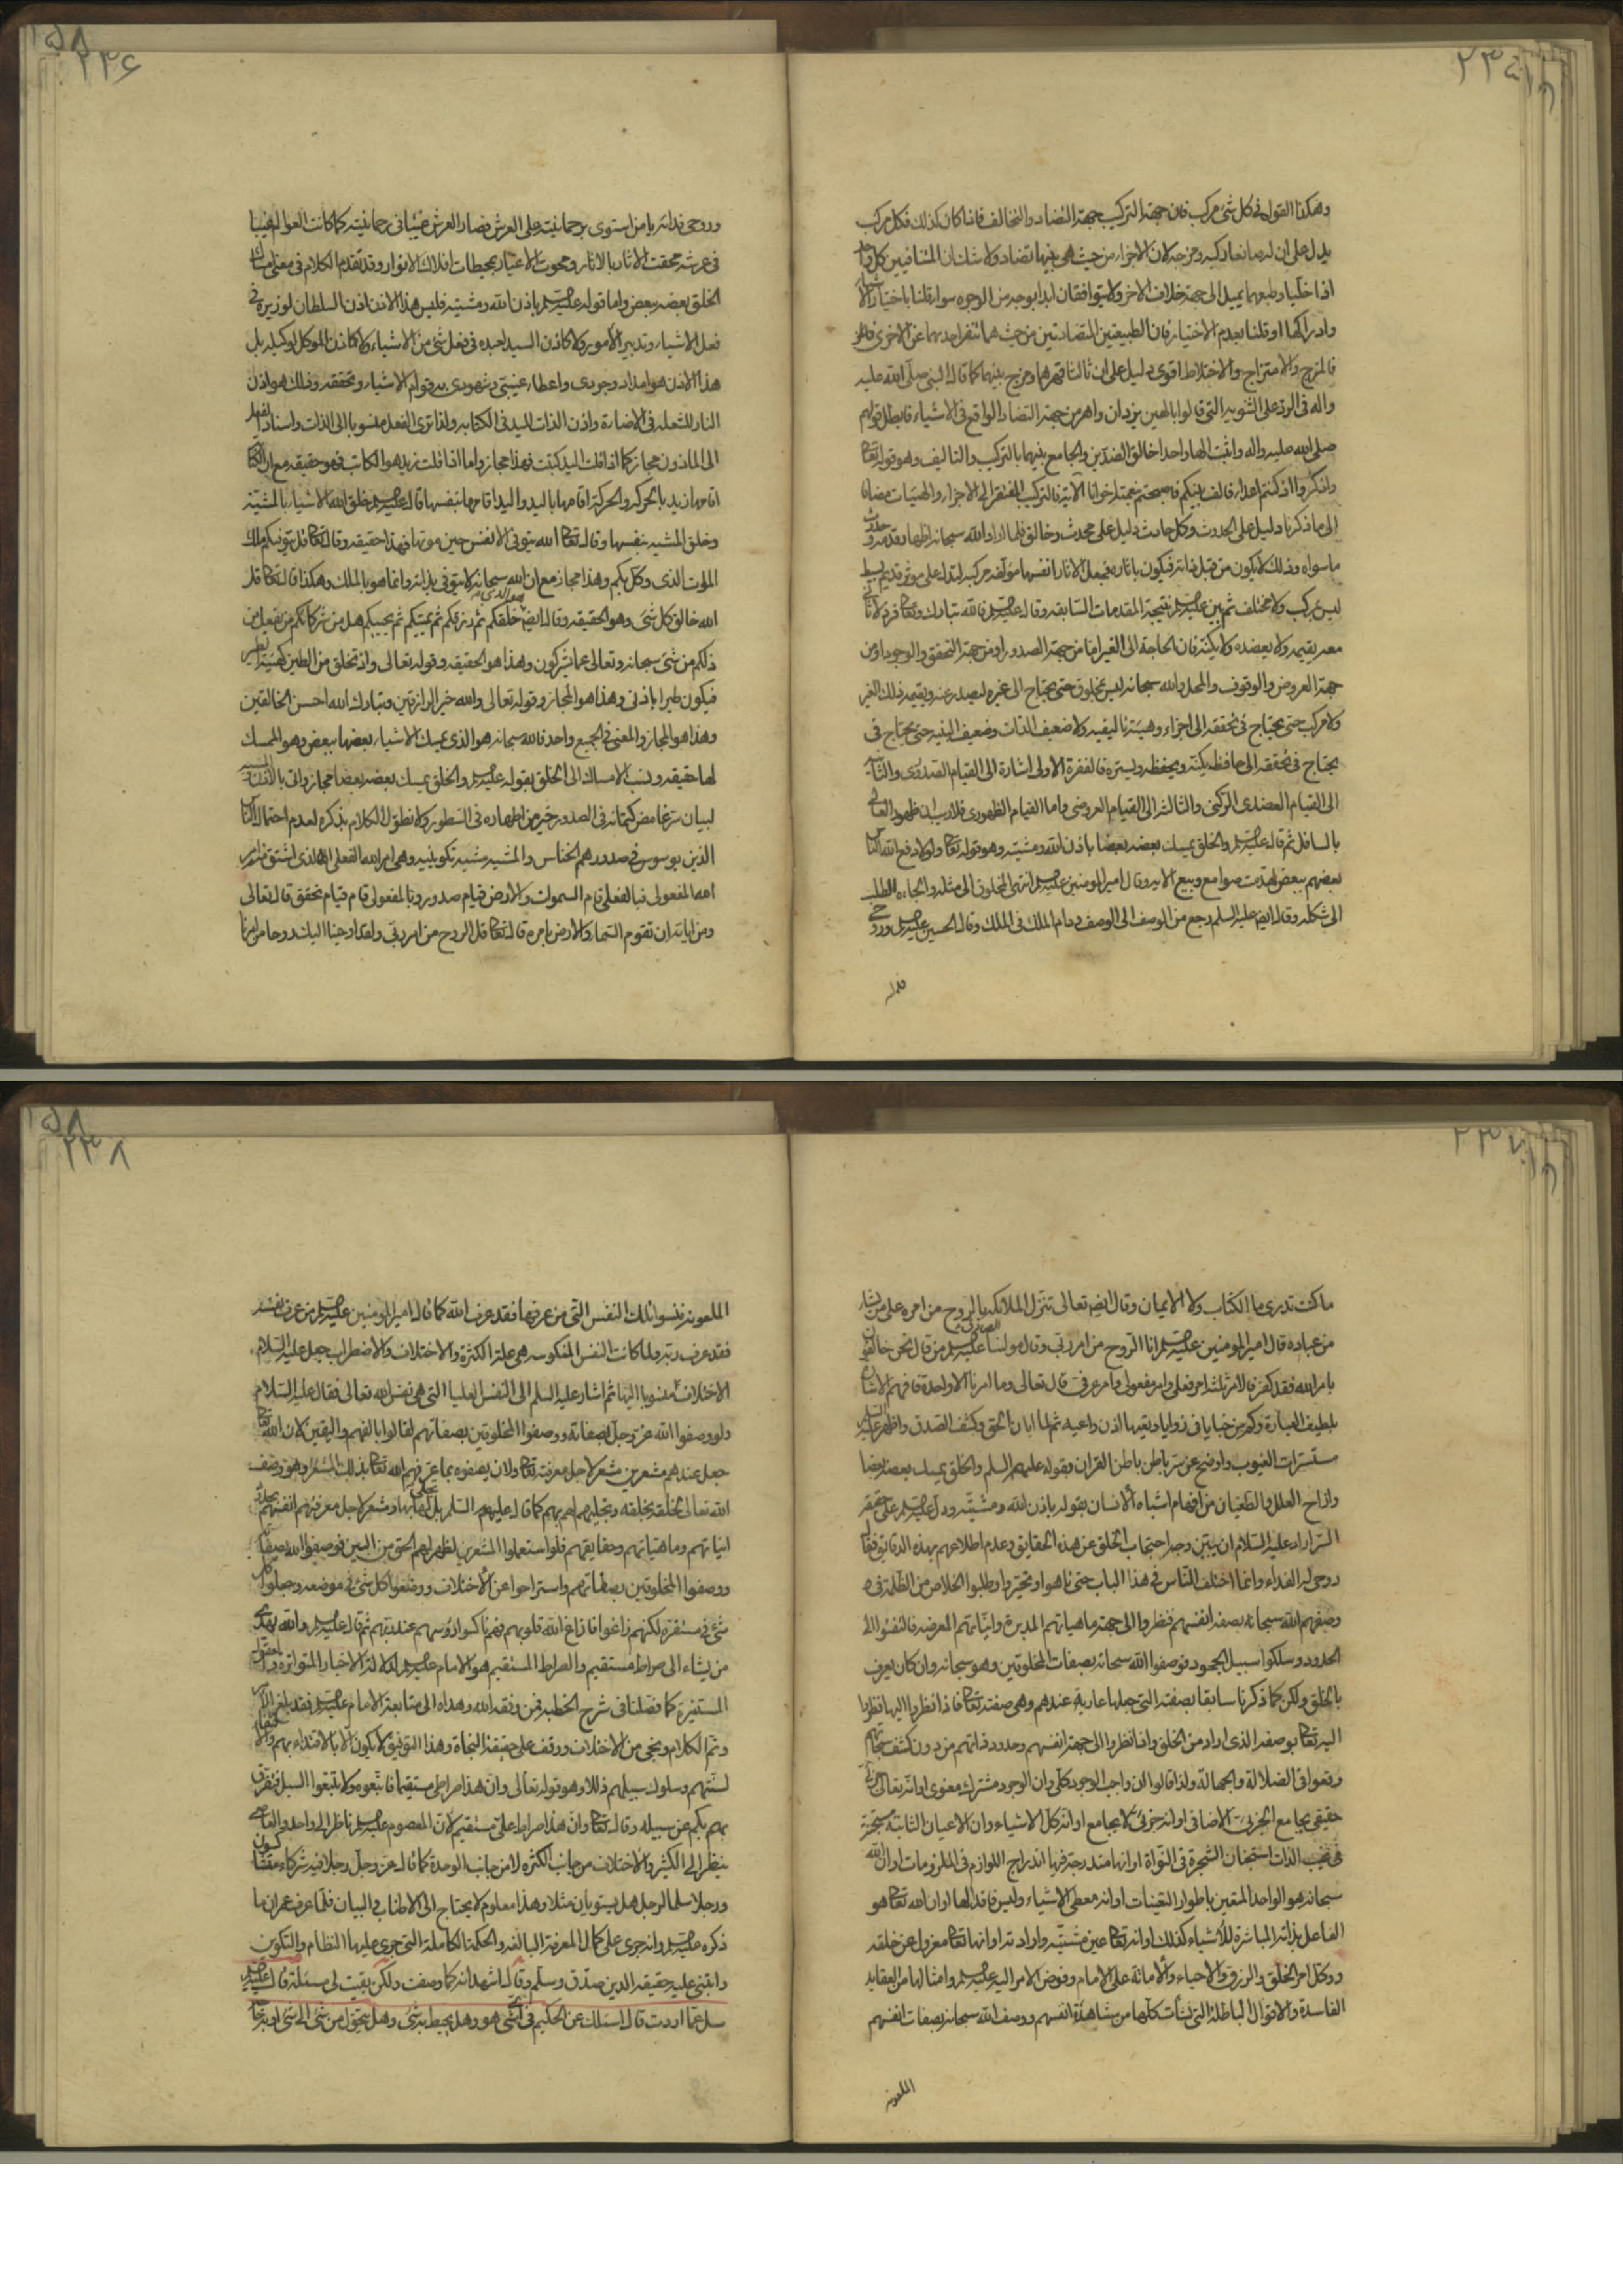 ٢٣٥
وهكذا القول في كل شئ مركب فان جهة التركيب جهة التضاد والتخالف فاذا كان كذلك فكل مركب
يدل على ان له صانعا ركبه ومزجه لان الاجزاء من حيث هي بينها تضاد ولا شك ان المتنافيين كل واحد
اذا خليا وطبعهما يميل الى جهة خلاف الاخر ولا يتوافقان ابدا بوجه من الوجوه سواء قلنا باختيار الاشياء
وادراكها او قلنا بعدم الاختيار فان الطبيعتين المتضادتين من حيث هما تنفر احديهما عن الاخرى
فالمزج والامتزاج والاختلاط اقوى دليل على ان ثالثا قهرهما ومزج بينهما كما قال النبي صلى الله عليه
واله في الرد على الثنوية التي قالوا بالهين يزدان واهرمن جهة التضاد الواقع في الاشياء فابطل قولهم
صلى الله عليه واله واثبت الها واحدا خالق الضدين والجامع بينهما بالتركيب والتاليف وهو قوله تعالى
واذكروا اذ كنتم اعداء فالف بينكم فاصبحتم بنعمته اخوانا الآية فالتركيب المفتقر الى الاجزاء والهيئات مضافا
الى ما ذكرنا دليل على الحدوث وكل حادث دليل على محدث وخالق فلما اراد الله سبحانه اظهار قدمه وحدوث
ما سواه وذلك لا يكون من قبل ذاته فيكون باثاره فجعل الاثار انفسها مؤلفة مركبة لتدل على موثر قديم بسيط
ليس بمركب ولا مختلف ثم بين عليه السلم نتيجة المقدمات السابقه وقال عليه السلم فالله تبارك وتعالى فرد لا ثاني
معه يقيمه ولا يعضده ولا يكنه فان الحاجة الى الغير اما من جهة الصدور او من جهة التحقق والوجود او من
جهة العروض والوقوف والمحل والله سبحانه ليس بمخلوق حتى يحتاج الى غيره ليصدر عنه ويقيمه ذلك الغير
ولا مركب حتى يحتاج في تحققه الى اجزاء وهيئة تاليفيه ولا ضعيف الذات وضعيف البنيه حتى يحتاج في
يحتاج في تحققه الى حافظ يكنه ويحفظه ويستره فالفقرة الاولى اشارة الى القيام الصدوري والثانية
الى القيام العضدي الركني والثالث الى القيام العروضي واما القيام الظهوري فلا ريب ان ظهور العالي
بالسافل ثم قال عليه السلم والخلق يمسك بعضه بعضا باذن الله ومشيته وهو قوله تعالى ولولا دفع الله الناس
بعضهم ببعض لهدمت صوامع وبيع الايه وقال امير المومنين عليه السلم انتهى المخلوق الى مثله والجاه الطلب
الى شكله وقال ايضا عليه السلم رجع من الوصف الى الوصف ودام الملك في الملك وقال الحسين عليه السلم وروحي
فداه
٢٣٦
وروحي فداه يا من استوى برحمانيته على العرش فصار العرش غيبا في رحمانيته كما كانت العوالم غيبا
في عرشه محقت الاثار بالاثار ومحوت الاغيار بمحيطات افلاك الانوار وقد تقدم الكلام في معنى امساك
الخلق بعضه ببعض واما قوله عليه السلم باذن الله ومشيته فليس هذا الاذن اذن السلطان لوزيره في
فعل الاشياء وتدبير الامور ولا كاذن السيد لعبده في فعل شئ من الاشياء ولا كاذن الموكل لوكيله بل
هذا الاذن هو امداد وجودي واعطاء غيبي وشهودي به قوام الاشياء وتحققه وذلك هو اذن
النار للشعلة في الاضاءة واذن الذات لليد في الكتابه ولذا ترى الفعل منسوبا الى الذات واسناد الفعل
الى الماذون مجاز كما اذا قلت اليد كتبت فهذا مجاز واما اذا قلت زيد هو الكاتب فهو حقيقه مع ان الكتابة
اقامها زيد بالحركه والحركة اقامها باليد واليد اقامها بنفسها قال عليه السلم خلق الله الاشياء بالمشية
وخلق المشيه بنفسها وقال تعالى الله يتوفى الانفس حين موتها فهذا حقيقه وقال تعالى قل يتوفيكم ملك
الموت الذي وكل بكم وهذا مجاز مع ان الله سبحانه لا يتوفى بذاته وانما هو بالملك وهكذا قال تعالى قل
الله خالق كل شئ وهو الحقيقه وقال ايضا هو الذي خلقكم ثم رزقكم ثم يميتكم ثم يحييكم هل من شركائكم من يفعل من
ذلكم من شئ سبحانه وتعالى عما يشركون وهذا هو الحقيقه وقوله تعالى واذ تخلق من الطين كهيئة الطير
فيكون طيرا باذني وهذا هو المجاز وقوله تعالى والله خير الرازقين وتبارك الله احسن الخالقين
وهذا هو المجاز والمعنى في الجميع واحد فالله سبحانه هو الذي يمسك الاشياء بعضها ببعض وهو الممسك
لها حقيقه ونسب الامساك الى الخلق بقوله عليه السلم والخلق يمسك بعضه بعضا مجاز واتى بالاذن والمشية
لبيان سر غامض كتمانه في الصدور خير من اظهاره في السطور ولا نطول الكلام بذكره لعدم احتمال الناس
الذين يوسوس في صدورهم الخناس والمشيه مشية تكوينيه وهي امر الله الفعلي الذي اشتق منه امر
الله المفعولي فبالفعلي قام السموات والارض قيام صدور وبالمفعولي قام قيام تحقق قال تعالى
ومن اياته ان تقوم السماء والارض بامره قال تعالى قل الروح من امر ربي ولقد اوحينا اليك روحا من امرنا
٢٣٧
ما كنت تدري ما الكتاب ولا الايمان وقال ايضا تعالى تنزل الملائكه بالروح من امره على من يشاء
من عباده قال امير المومنين عليه السلم انا الروح من امر ربي وقال مولنا الصادق عليه السلم من قال نحن خالقون
بامر الله فقد كفر فالامر ثلثة امر فعلي وامر مفعولي وامر عرفي قال تعالى وما امرنا الا واحدة فافهم الاشارة
بلطيف العبارة وكم من خبايا في زوايا وتعيها اذن واعيه ثم لما ابان الحق وكشف الصدق واظهر عليه السلم
مستسرات الغيوب واوضح عن سر باطن باطن القران بقوله عليهم السلم والخلق يمسك بعضه بعضا
وازاح العلل والطغيان من افهام اشباه الانسان بقوله باذن الله ومشيته ودل عليه السلم على حقيقة
السر اراد عليه السلام ان يبين وجه احتجاب الخلق عن هذه الحقايق وعدم اطلاعهم بهذه الدقايق فقال
روحي له الفداء وانما اختلف الناس في هذا الباب حتى تاهوا وتحيروا وطلبوا الخلاص من الظلمة في
وصفهم الله سبحانه بصفة انفسهم فنظروا الى جهة ماهياتهم المدبرة وانياتهم المعرضه فالتفتوا الى
الحدود وسلكوا سبيل الجحود فوصفوا الله سبحانه بصفات المخلوقين وهو سبحانه وان كان يعرف
بالخلق ولكن كما ذكرنا سابقا بصفته التي جعلها عارية عندهم وهي صفته تعالى فاذا نظروا اليها نظروا
اليه تعالى بوصفه الذي اراد من الخلق واذا نظروا الى جهة انفسهم وحدود ذاتهم من دون كشف سبحاتهم
وقعوا في الضلالة والجهالة ولذا قالوا ان واجب الوجود كلي وان الوجود مشترك معنوي او انه تعالى جزئي
حقيقي يجامع الجزئي الاضافي او انه جزئي لا يجامع او انه كل الاشياء وان الاعيان الثابتة مستجنة
في غيب الذات استجنان الشجرة في النواة او انها مندرجة فيها اندراج اللوازم في الملزومات او ان الله
سبحانه هو الواحد المتعين باطوار التعينات او انه معطي الاشياء وليس فاقدا لها او ان الله تعالى هو
الفاعل بذاته المباشرة للاشياء كذلك او انه تعالى عين مشيته وارادته او انه تعالى معزول عن خلقه
ووكل امر الخلق والرزق والاحياء والاماتة على الامام وفوض الامر اليه عليه السلم وامثالها من العقايد
الفاسدة والاقوال الباطلة التي نشأت كلها من مشاهدة انفسهم ووصف الله سبحانه بصفات انفسهم
الملعونه
٢٣٨
الملعونة فنسوا تلك النفس التي من عرفها فقد عرف الله كما قال امير المومنين عليه السلم من عرف نفسه
فقد عرف ربه ولما كانت النفس المنكوسه هي علة الكثرة والاختلاف والاضطراب جعل عليه السلام
الاختلاف منسوبا اليها ثم اشار عليه السلم الى النفس العليا التي هي نفس الله تعالى فقال عليه السلام
ولو وصفوا الله عز وجل بصفاته ووصفوا المخلوقين بصفاتهم لقالوا بالفهم واليقين لان الله تعالى
جعل عندهم مشعرين مشعر لاجل معرفته تعالى ولان يصفوه بما عرفهم الله تعالى بذلك المشعر وهو وصف
الله تعالى لخلقه بخلقه وتجليه لهم بهم كما قال عليهم السلم بل تجلى لها بها ومشعر لاجل معرفتهم انفسهم بجهة
انياتهم وماهياتهم وحقايقهم فلو استعملوا المشعرين لظهر لهم الحق من البين فوصفوا الله بصفاته
ووصفوا المخلوقين بصفاتهم واستراحوا عن الاختلاف ووضعوا كل شئ في موضعه وجعلوا كل
شئ في مستقره لكنهم زاغوا فازاغ الله قلوبهم فهم ناكسوا رؤسهم عند ربهم ثم قال عليه السلم والله يهدي
من يشاء الى صراط مستقيم والصراط المستقيم هو الامام عليه السلم لدلالة الاخبار المتواترة والعقول
المستنيرة كما فصلنا في شرح الخطبه فمن وفقه الله وهداه الى متابعة الامام عليه السلم فقد بلغ
وتم الكلام ونجى من الاختلاف ووقف على حقيقة النجاة وهذا التوفيق لا يكون الا بالاقتداء بهم
لسنتهم وسلوك سبيلهم ذللا وهو قوله تعالى وان هذا صراطي مستقيما فاتبعوه ولا تتبعوا السبل فتفرق
بكم عن سبيله وقال تعالى وان هذا صراط علي مستقيم لان المعصوم عليه السلم ناظر الى واحد
ينظر الى الكثير والاختلاف من جانب الكثره لا من جانب الوحدة كما قال عز وجل رجلا فيه شركاء متشاكسون
ورجلا سلما لرجل هل يستويان مثلا وهذا معلوم لا يحتاج الى الاطناب في البيان فلما عرف عمران ما
ذكره عليه السلم وانه جرى على كمال المعرفة البالغه والحكمة الكاملة التي جرى عليها النظام والتكوين
وابتني عليه حقيقة الدين صدق وسلم وقال اشهد انه كما وصفت ولكن بقيت لي مسئلة قال عليه السلم
سل عما اردت قال اسئلك عن الحكيم في اي شئ هو وهل يحيط به شئ وهل يتحول من شئ الى شئ او به حاجة